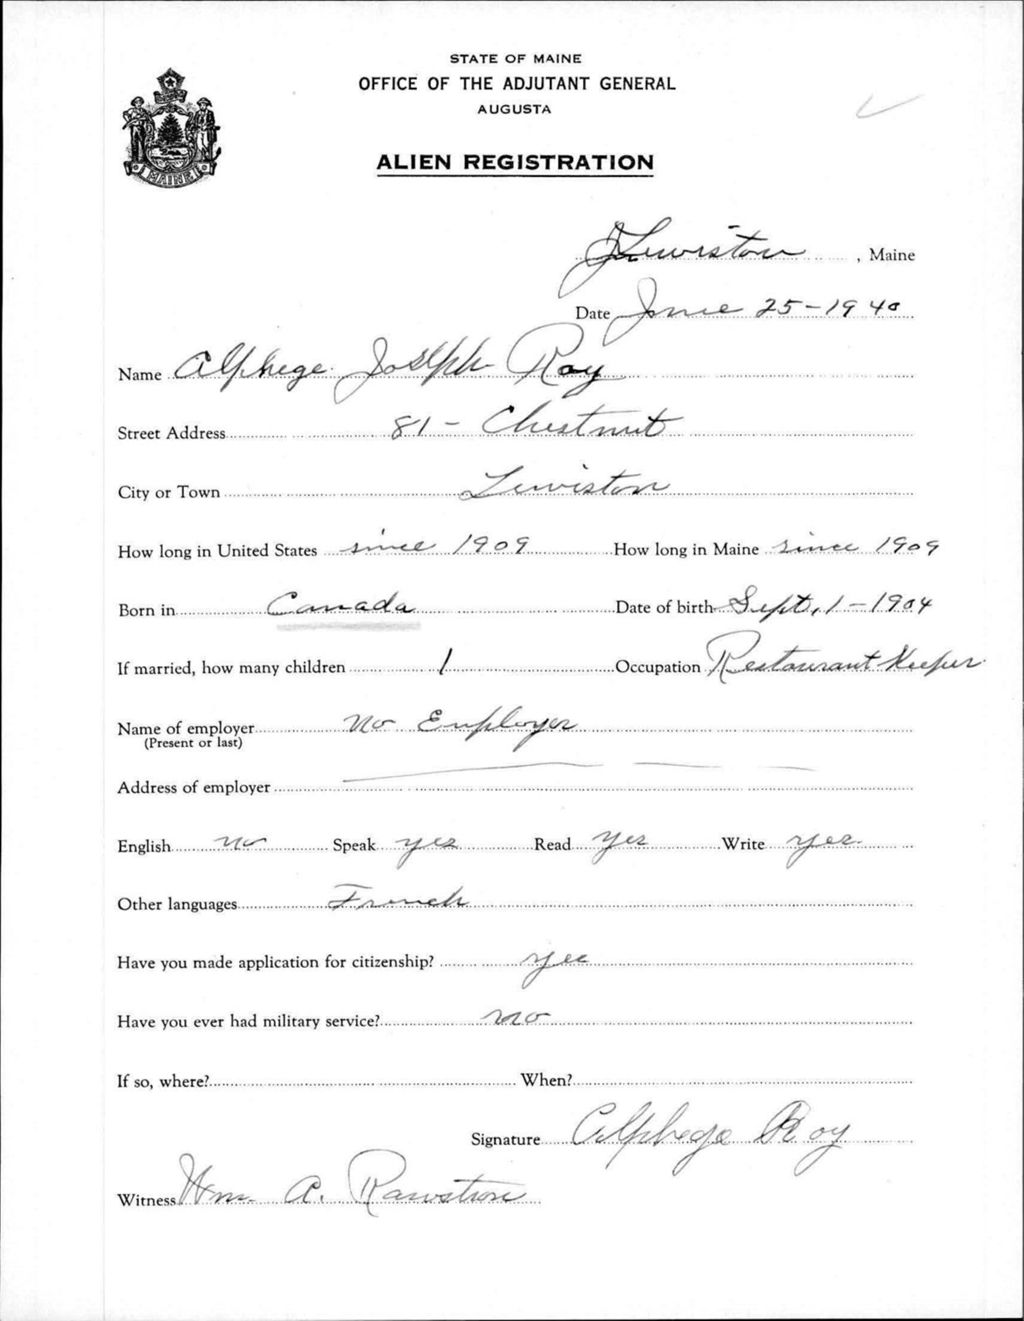 STATE OF MAINE
OFFICE OF THE ADJUTANT GENERAL
AUGUSTA
ALIEN REGISTRATION
MAINE
Lewiston, Maine
Date June 25-1940
Name Alphege Joseph Roy
Street Address 81 - Chestnut
City or Town Lewiston
How long in United States since 1909 How long in Maine since 1909
Born in Canada Date of birth Sept, 1-1904
If married, how many children 1 Occupation Restaurant Keeper
Name of employer No Employer
(Present or last)
Address of employer
English no Speak yes Read yes Write yes
Other languages French
Have you made application for citizenship? yes
Have you ever had military service? no
If so, where? When?
Signature Alphege Roy
Witness Wm. A. Rawstron